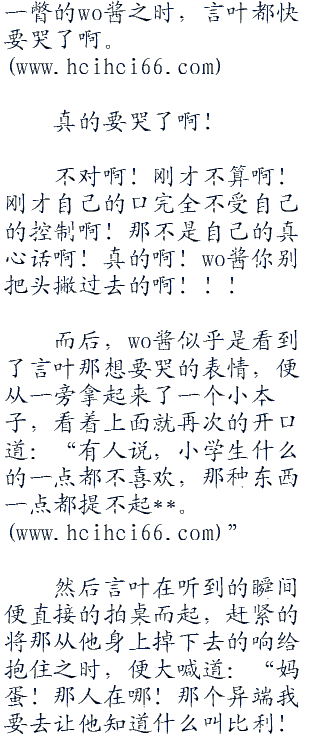 一瞥的wo酱之时，言叶都快
要哭了啊。
(www.hcihci66.com)
真的要哭了啊！
不对啊！刚才不算啊！
刚才自己的口完全不受自己
的控制啊！那不是自己的真
心话啊！真的啊！wo酱你别
把头撇过去的啊！！！
而后，wo酱似乎是看到
了言叶那想要哭的表情，便
从一旁拿起来了一个小本
子，看着上面就再次的开口
道：“有人说，小学生什么
的一点都不喜欢，那种东西
一点都提不起**。
(www.hcihci66.com)”
然后言叶在听到的瞬间
便直接的拍桌而起，赶紧的
将那从他身上掉下去的响给
抱住之时，便大喊道：“妈
蛋！那人在哪！那个异端我
要去让他知道什么叫比利！